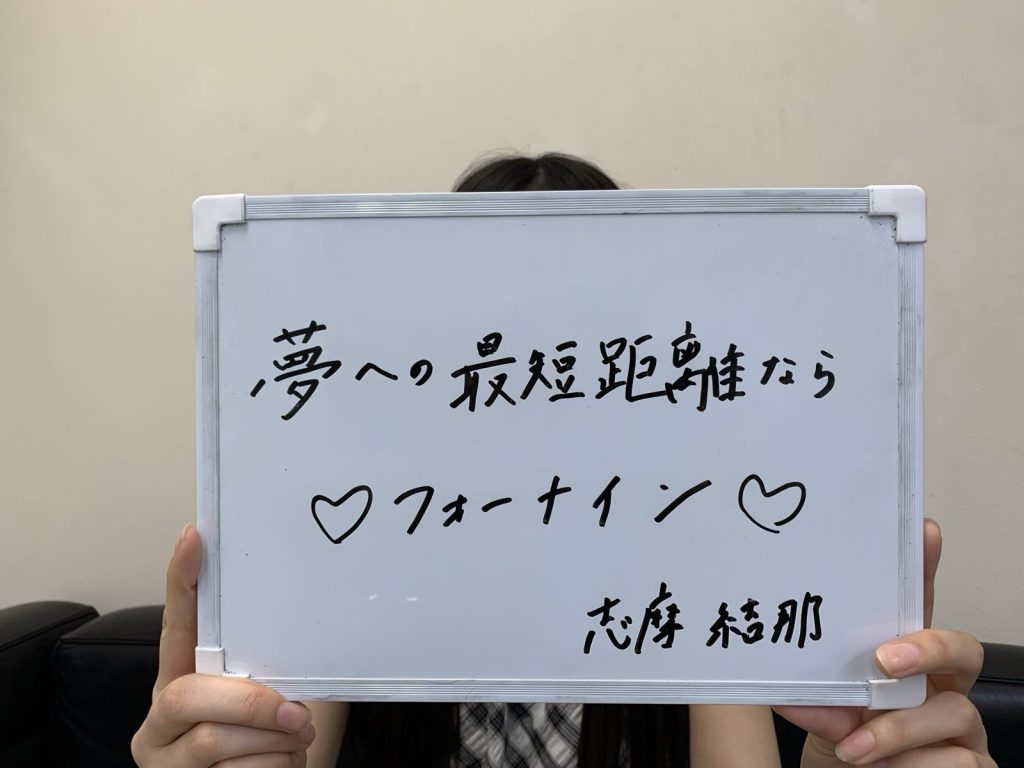 夢への最短距離なら
♡フォーナイン♡
志摩 結那